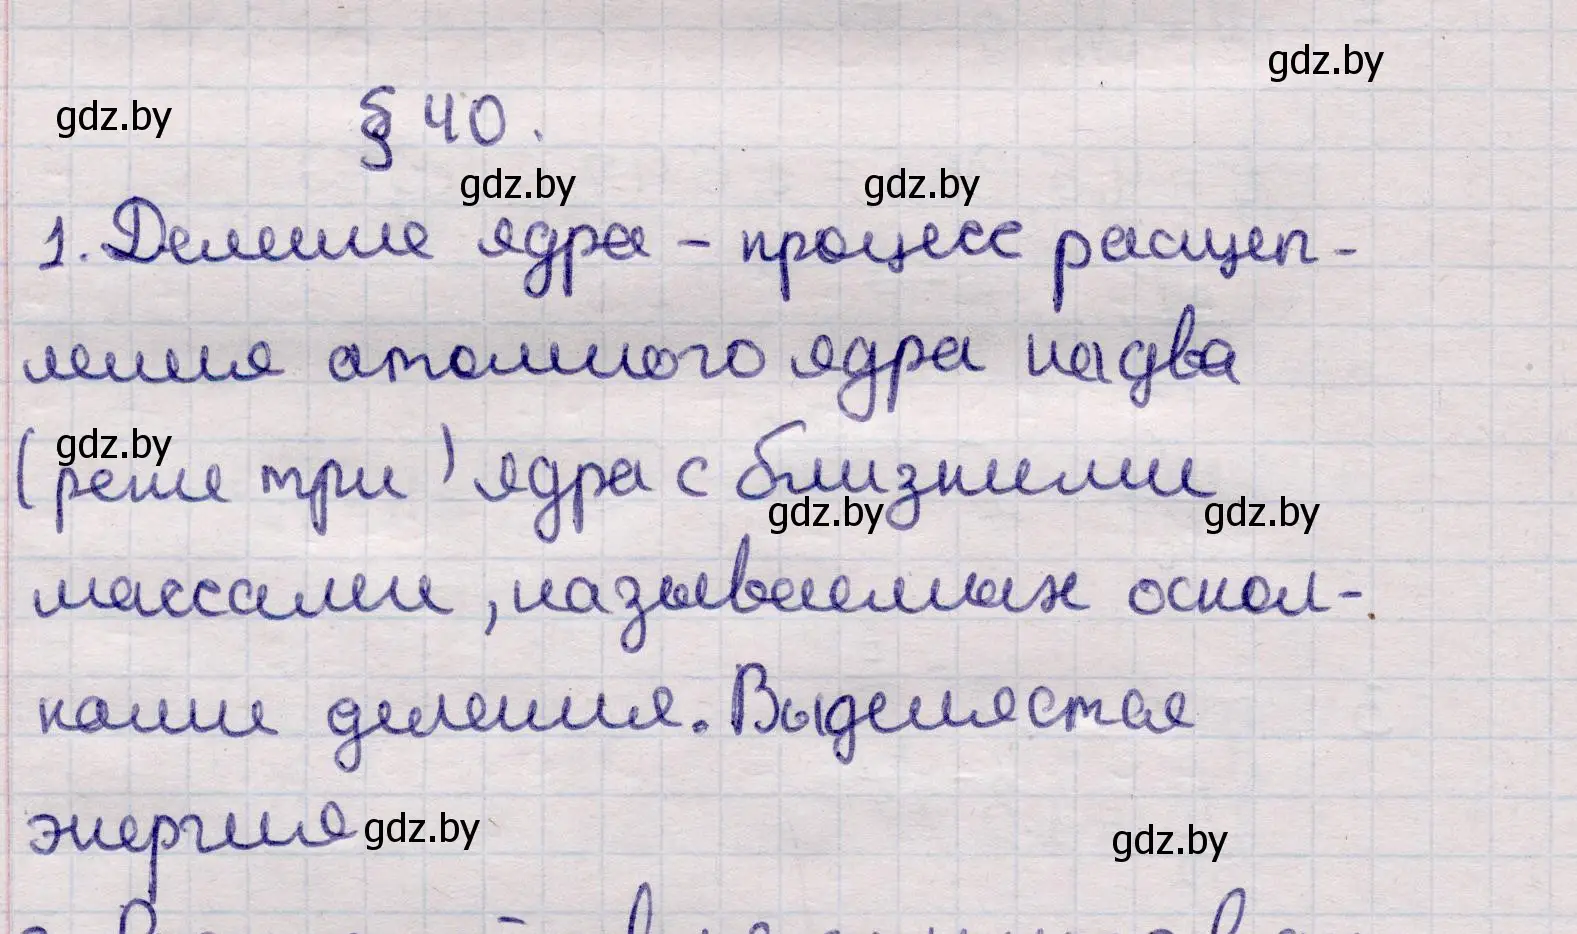 gdz.by
gdz.by
§ 40.
gdz.by gdz.by
1. Деление ядра – процесс расщеп-
ления атомного ядра на два
gdz.by
(реже три) ядра с близкими
gdz.by gdz.by
массами, называемых оскол-
ками деления. Выделяется
энергия
gdz.by gdz.by